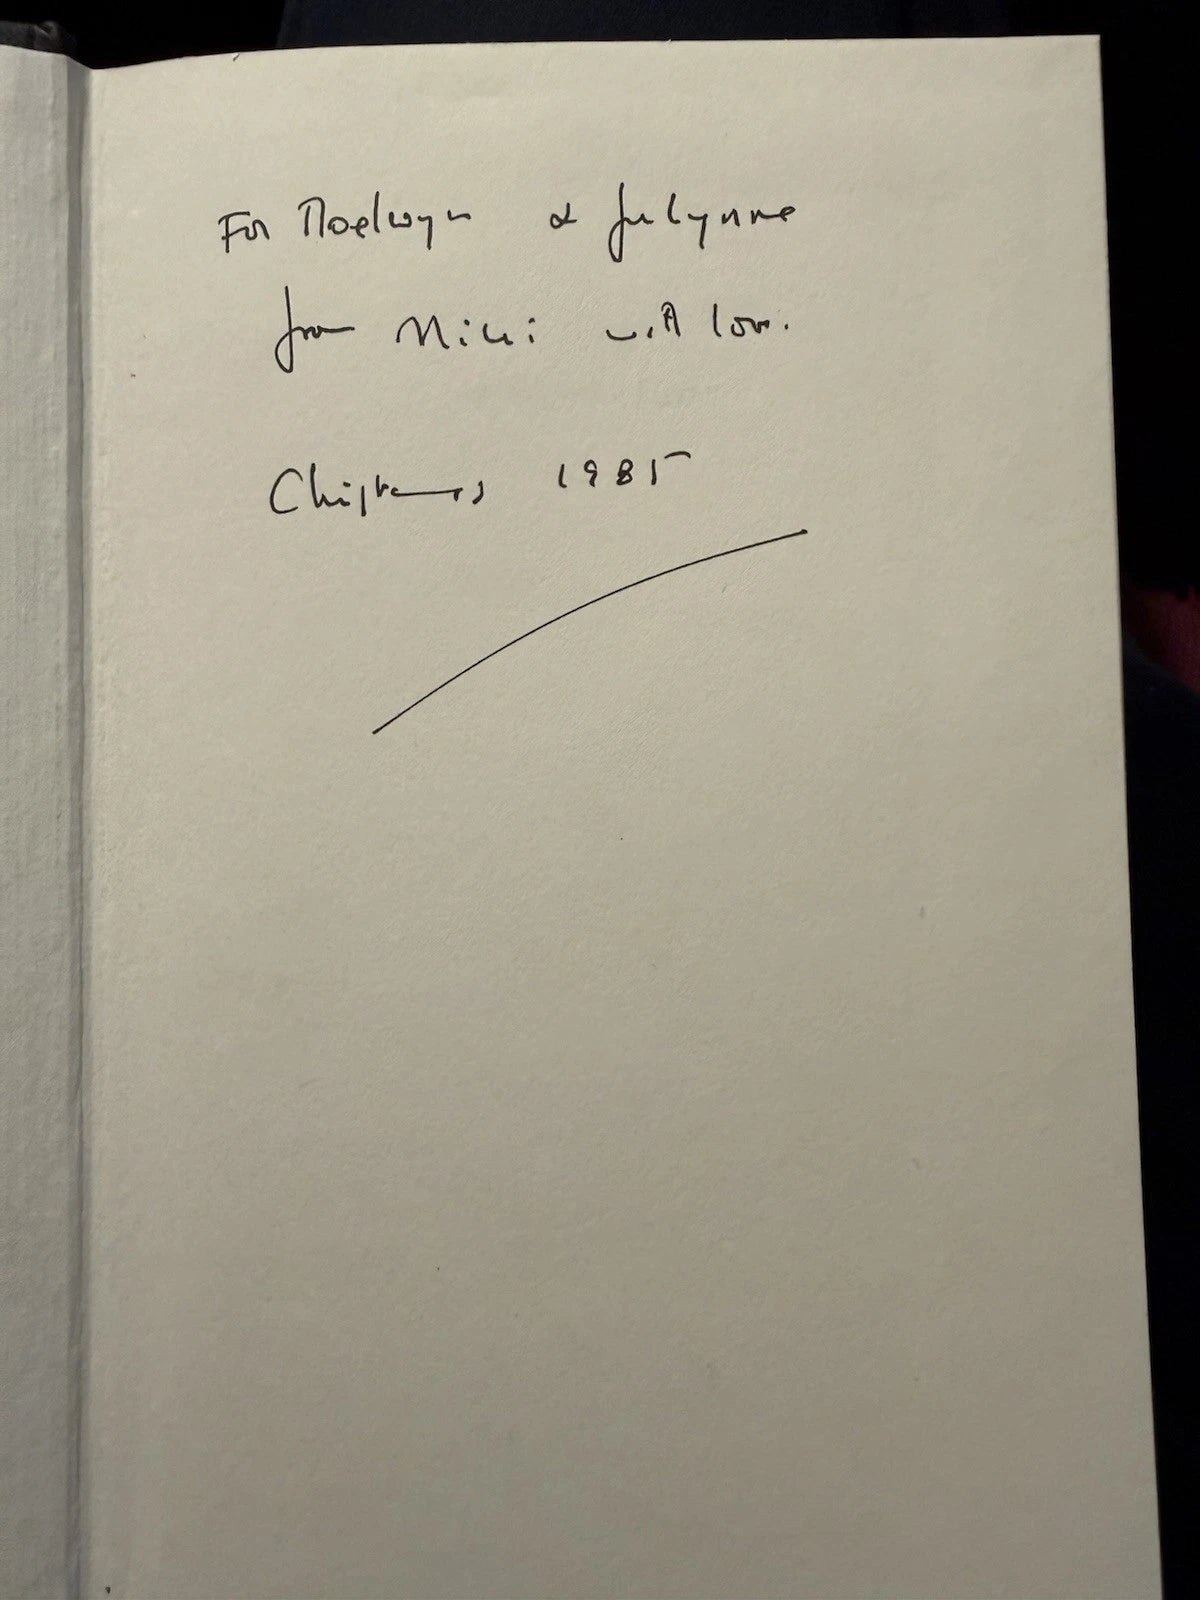 For Moelwyn & Julynne
from Niki with love.
Christmas 1985